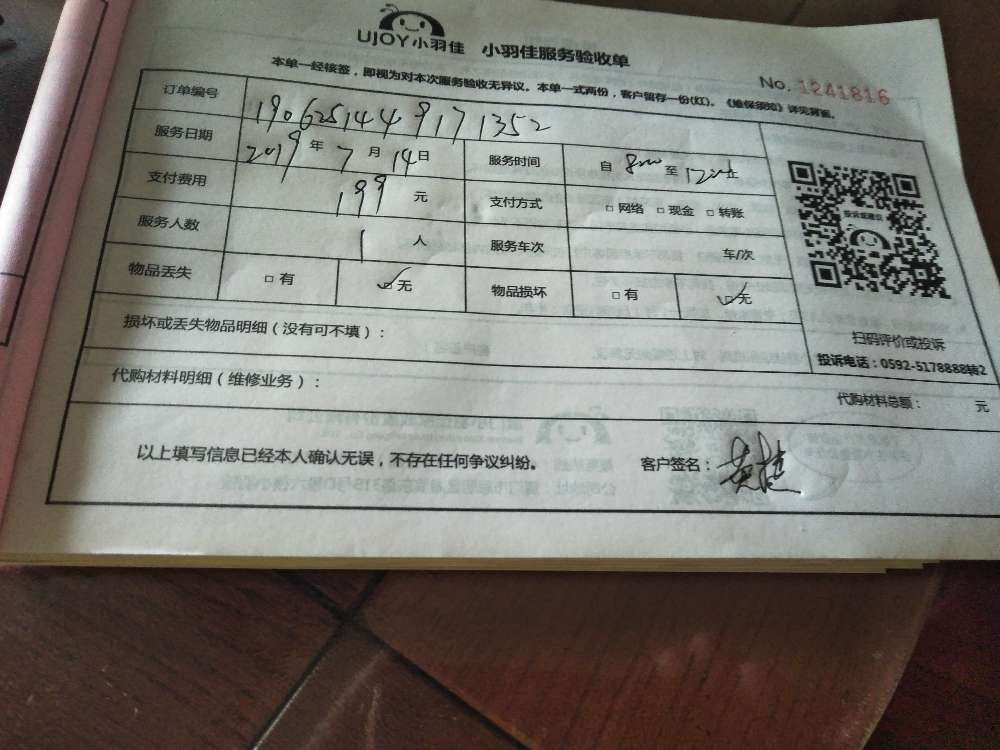 UJOY小羽佳 小羽佳服务验收单
No. 1241816
本单一经核签，即视为对本次服务验收无异议。本单一式两份，客户留存一份(红)。《维保须知》详见背面。
订单编号 190625144 9171352
服务日期 2019 年 7 月 14 日 服务时间 自 8:00 至 12:00止
支付费用 199 元 支付方式 □ 网络 □ 现金 □ 转账
服务人数 1 人 服务车次 车/次
物品丢失 □ 有 ☑ 无 物品损坏 □ 有 ☑ 无
损坏或丢失物品明细（没有可不填）：
扫码评价或投诉
投诉电话：0592-5178888转2
代购材料明细（维修业务）： 代购材料总额： 元
以上填写信息已经本人确认无误，不存在任何争议纠纷。 客户签名：